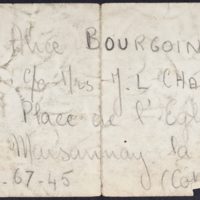 Alice BOURGOIN
c/o Mrs J. L CHA
Place de l'Egl
Marsannay la
.67-45 (Co